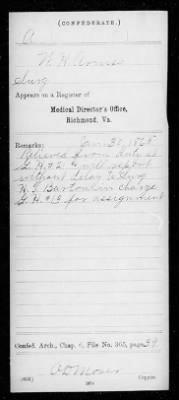 (CONFEDERATE.)
A
Surg
Appears on a Register of
Medical Director's Office,
Richmond, Va.
Remarks: Jan. 30, 1865
Relieved from duty at
G. H. # 21 & will report
without delay to Surg
in charge
G. H. # 9 for assignment
Confed. Arch., Chap. 6, File No. 365, page 39
Copyist.